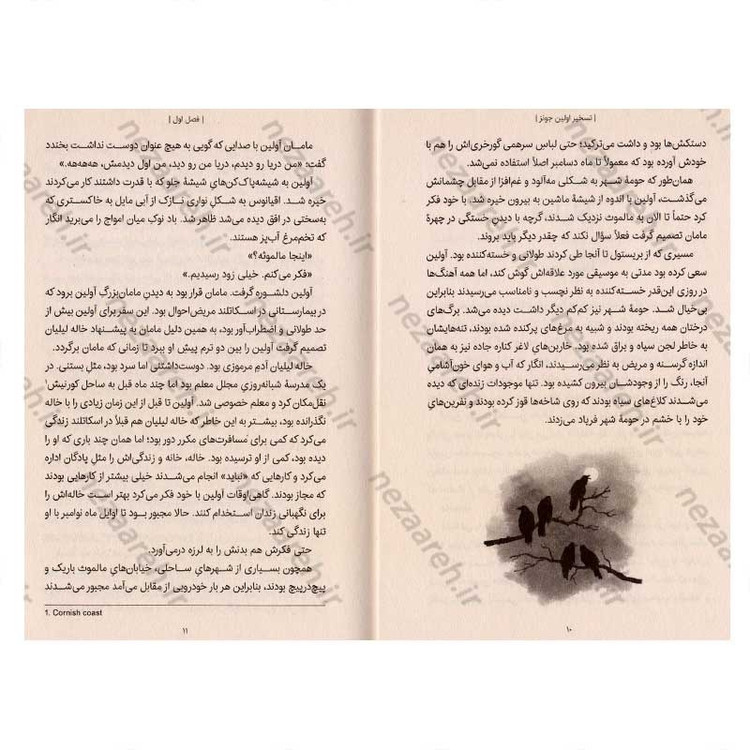 | تسخیر اولین جونز |
دستکش‌ها بود و داشت می‌ترکید؛ حتی لباسِ سرهمی گورخری‌اش را هم با
خودش آورده بود که معمولاً تا ماه دسامبر اصلاً استفاده نمی‌شد.
همان‌طور که حومهٔ شهر به شکلی مه‌آلود و غم‌افزا از مقابل چشمانش
می‌گذشت، آولین با اندوه از شیشهٔ ماشین به بیرون خیره شد. با خود فکر
کرد حتماً تا الان به مالموث نزدیک شدند، گرچه با دیدنِ خستگی در چهرهٔ
مامان تصمیم گرفت فعلاً سؤال نکند که چقدر دیگر باید بروند.
مسیری که از بریستول تا آنجا طی کردند طولانی و خسته‌کننده بود. آولین
سعی کرده بود مدتی به موسیقی مورد علاقه‌اش گوش کند، اما همه آهنگ‌ها
در روزی این‌قدر خسته‌کننده به نظر نچسب و نامناسب می‌رسیدند بنابراین
بی‌خیال شد. حومهٔ شهر نیز کم‌کم دیگر داشت دیده می‌شد. برگ‌های
درختان همه ریخته بودند و شبیه به مرغ‌های پرکنده شده بودند، تنه‌هایشان
به خاطر لجن سیاه و براق شده بود. خاربن‌های لاغر کناره جاده نیز به همان
اندازه گرسنه و مریض به نظر می‌رسیدند، انگار که آب و هوای خون‌آشامیِ
آنجا، رنگ را از وجودشان بیرون کشیده بود. تنها موجودات زنده‌ای که دیده
می‌شدند کلاغ‌های سیاه بودند که روی شاخه‌ها قوز کرده بودند و نفرین‌هایِ
خود را با خشم در حومهٔ شهر فریاد می‌زدند.
۱۰
| فصل اول |
مامان آولین با صدایی که گویی به هیچ عنوان دوست نداشت بخندد
گفت: «من دریا رو دیدم، دریا من رو دید، من اول دیدمش، هه‌هه‌هه.»
آولین به شیشه‌پاک‌کن‌هایِ شیشهٔ جلو که با قدرت داشتند کار می‌کردند
خیره شد. اقیانوس به شکلِ نواری نازک از آبی مایل به خاکستری که
به‌سختی در افق دیده می‌شد ظاهر شد. باد نوکِ میان امواج را می‌برید انگار
که تخم‌مرغ آب‌پز هستند.
«اینجا مالموثه؟»
«فکر می‌کنم. خیلی زود رسیدیم.»
آولین دلشوره گرفت. مامان قرار بود به دیدنِ مامان‌بزرگِ آولین برود که
در بیمارستانی در اسکاتلند مریض‌احوال بود. این سفر برای آولین بیش از
حد طولانی و اضطراب‌آور بود، به همین دلیل مامان به پیشنهاد خاله لیلیان
تصمیم گرفت آولین را بین دو ترم پیش او ببرد تا زمانی که مامان برگردد.
خاله لیلیان آدم مرموزی بود. دوست‌داشتنی اما سرد بود، مثلِ بستنی. در
یک مدرسهٔ شبانه‌روزیِ مجلل معلم بود اما چند ماه قبل به ساحل کورنیش¹
نقل‌مکان کرد و معلم خصوصی شد. آولین تا قبل از این زمان زیادی را با خاله
نگذرانده بود، بیشتر به این خاطر که خاله لیلیان هم قبلاً در اسکاتلند زندگی
می‌کرد که کمی برای مسافرت‌های مکرر دور بود؛ اما همان چند باری که او را
دیده بود، کمی از او ترسیده بود. خاله، خانه و زندگی‌اش را مثل پادگان اداره
می‌کرد و کارهایی که «نباید» انجام می‌شدند خیلی بیشتر از کارهایی بودند
که مجاز بودند. گاهی‌اوقات آولین با خود فکر می‌کرد بهتر است خاله‌اش را
برای نگهبانی زندان استخدام کنند. حالا مجبور بود تا اوایل ماه نوامبر با او
تنها زندگی کند.
حتی فکرش هم بدنش را به لرزه درمی‌آورد.
همچون بسیاری از شهرهایِ ساحلی، خیابان‌هایِ مالموث باریک و
پیچ‌درپیچ بودند، بنابراین هر بار خودرویی از مقابل می‌آمد مجبور می‌شدند
1. Cornish coast
۱۱
nezaareh.ir
nezaareh.ir
nezaareh.ir
nezaareh.ir
nezaareh.ir
nezaareh.ir